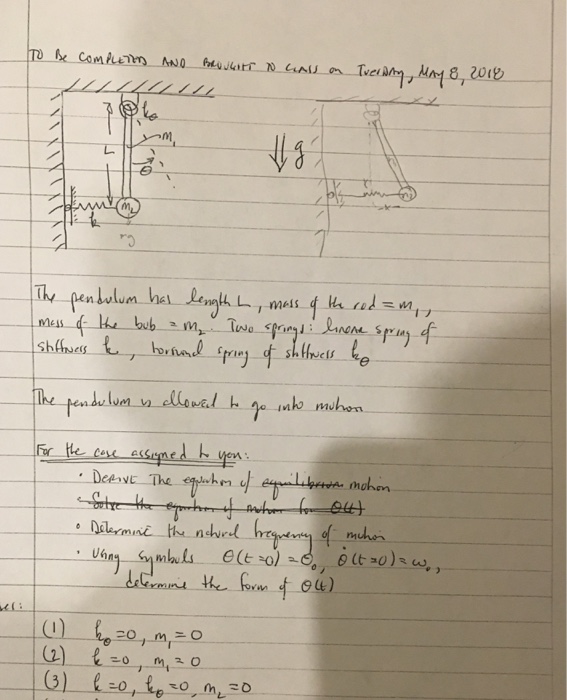 TO BE COMPLETED AND BROUGHT TO CLASS on TUESDAY, MAY 8, 2018
kθ
m₁
L
θ
m₂
k
g
The pendulum has length L, mass of the rod = m₁,
mass of the bob = m₂. Two springs: linear spring of
stiffness k, torsional spring of stiffness kθ
The pendulum is allowed to go into motion
For the case assigned to you:
• DERIVE The equation of equilibrium motion
• Solve the equation of motion for θ(t)
• Determine the natural frequency of motion
• Using symbols θ(t=0) = θ₀, θ̇(t=0) = ω₀,
determine the form of θ(t)
(1) kθ=0, m₁=0
(2) k=0, m₁=0
(3) k=0, kθ=0, m₂=0